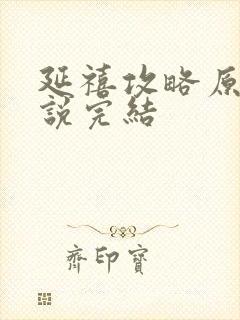 延禧攻略原
說完結
齊印寶